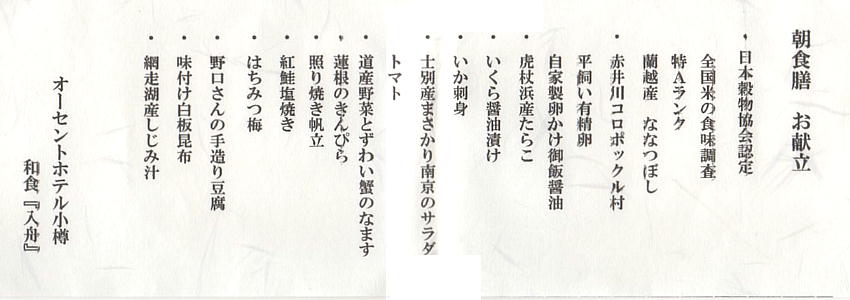 朝食膳　お献立
・日本穀物協会認定
全国米の食味調査
特Aランク
蘭越産　ななつぼし
・赤井川コロポックル村
平飼い有精卵
自家製卵かけ御飯醤油
・虎杖浜産たらこ
・いくら醤油漬け
・いか刺身
・士別産まさかり南京のサラダ
トマト
・道産野菜とずわい蟹のなます
・蓮根のきんぴら
・照り焼き帆立
・紅鮭塩焼き
・はちみつ梅
・野口さんの手造り豆腐
・味付け白板昆布
・網走湖産しじみ汁
オーセントホテル小樽
和食『入舟』